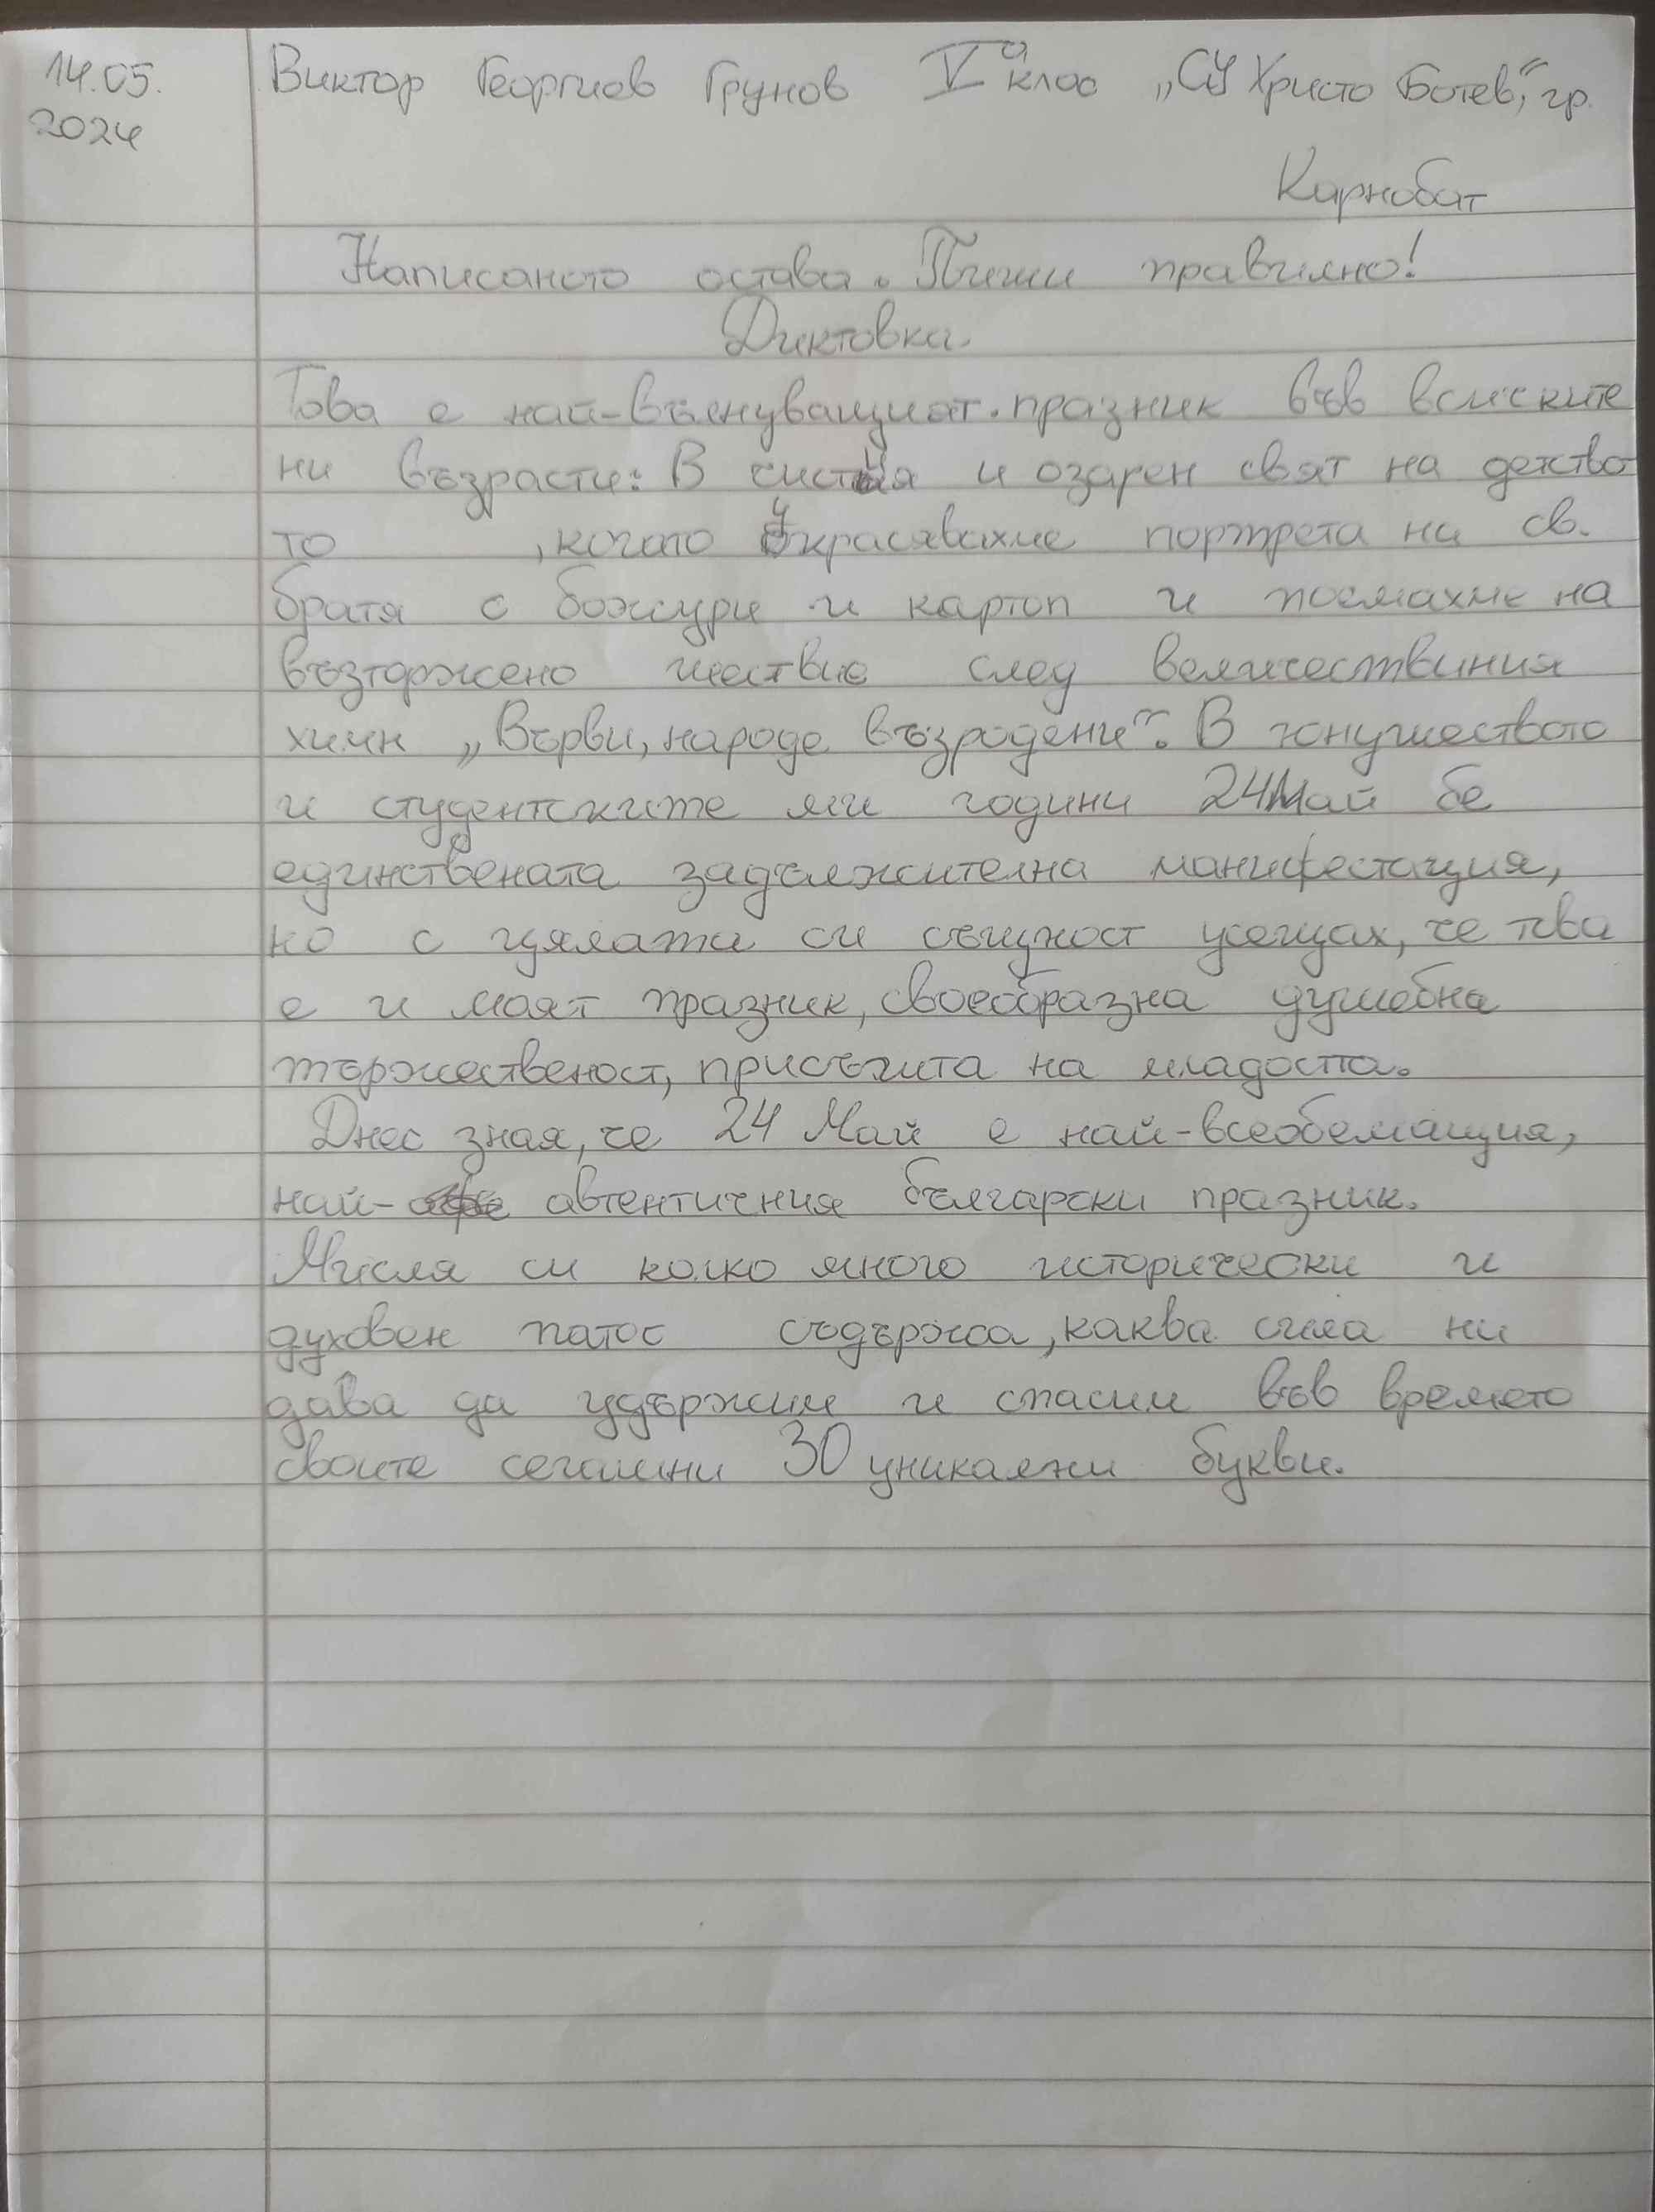 14.05.
2024
Виктор Георгиев Грунов Vа клас „СУ Христо Ботев“, гр.
Карнобат
Написаното остава. Пиши правилно!
Диктовка.
Това е най-вълнуващиат празник във всиските
ни възрасти: В чистия и озарен свят на детство
то , когато украсявахме портрета на св.
братя с божури и картоп и поемахме на
възторжено шествие след величествиния
химн „Върви, народе възродени“. В юнушеството
и студентските ми години 24 Май бе
единствената задължителна манифестация,
но с цялата си същност усещах, че това
е и моят празник, своеобразна душебна
тържественост, присъгита на младостта.
Днес зная, че 24 Май е най-всеобемащия,
най- автентичния български празник.
Мисля си колко много исторически и
духовен патос съдържа, каква сила ни
дава да удържим и спасим във времето
своите сегашни 30 уникални букви.